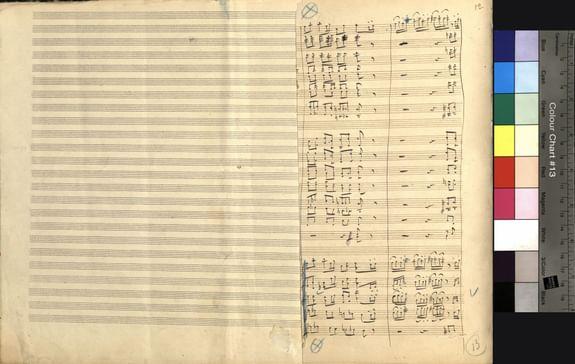 12
Colour Chart #13
Blue
Cyan
Green
Yellow
Red
Magenta
White
3/Color
Black
13